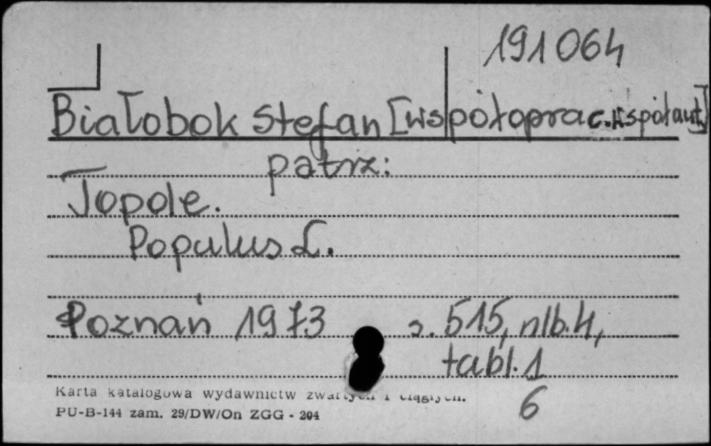 191064
Białobok Stefan [współoprac. współaut.]
patrz:
Topole.
Populus L.
Poznań 1973 s. 515, nlb. 4,
tabl. 1
Karta katalogowa wydawnictw zwartych i ciągłych.
6
PU-B-144 zam. 29/DW/On ZGG - 204